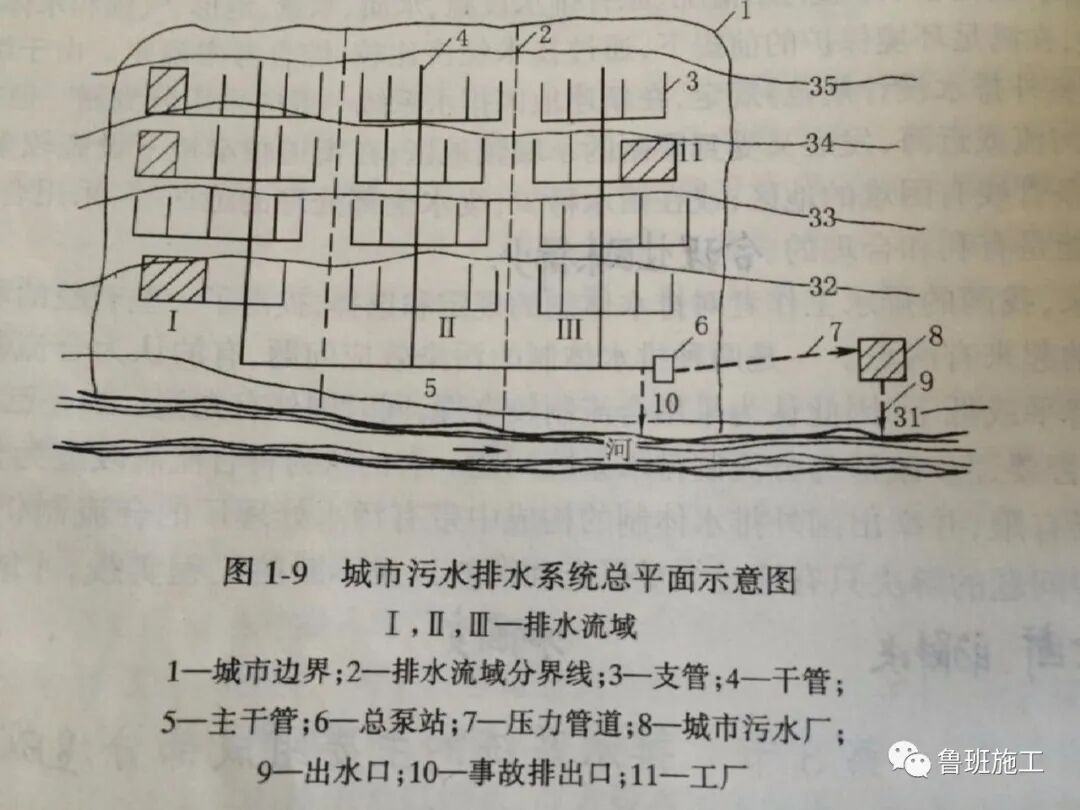 1
2
4
3
35
34
11
33
32
I
II
III
6
7
8
5
10
9
31
河
图 1-9 城市污水排水系统总平面示意图
Ⅰ,Ⅱ,Ⅲ—排水流域
1—城市边界;2—排水流域分界线;3—支管;4—干管;
5—主干管;6—总泵站;7—压力管道;8—城市污水厂;
9—出水口;10—事故排出口;11—工厂
鲁班施工